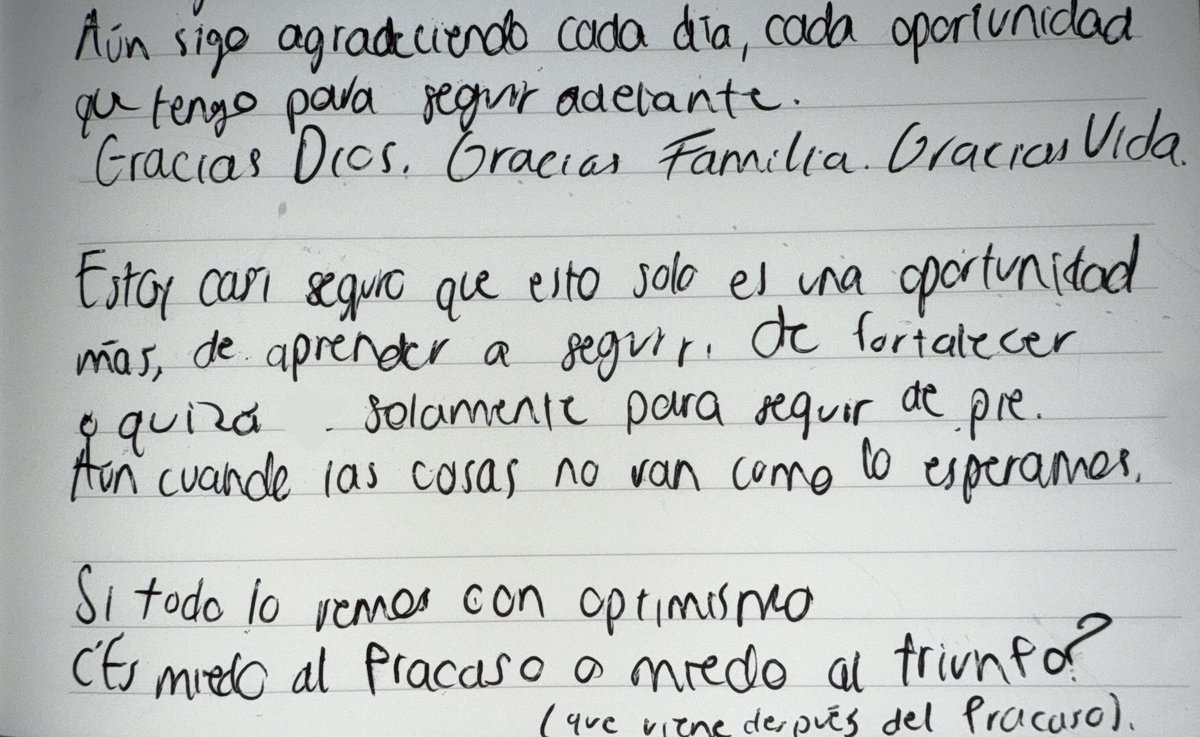 Aún sigo agradeciendo cada día, cada oportunidad
que tengo para seguir adelante.
Gracias Dios. Gracias Familia. Gracias Vida.
Estoy casi seguro que esto solo es una oportunidad
más, de aprender a seguir, de fortalecer
o quizá solamente para seguir de pie.
Aún cuando las cosas no van como lo esperamos.
Si todo lo vemos con optimismo
¿Es miedo al fracaso o miedo al triunfo?
(que viene después del fracaso).